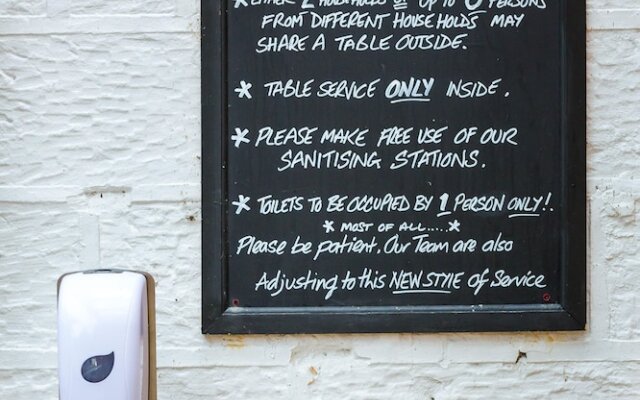 * EITHER 2 HOUSEHOLDS OR UP TO 6 PERSONS
FROM DIFFERENT HOUSEHOLDS MAY
SHARE A TABLE OUTSIDE.
* TABLE SERVICE ONLY INSIDE.
* PLEASE MAKE FREE USE OF OUR
SANITISING STATIONS.
* TOILETS TO BE OCCUPIED BY 1 PERSON ONLY!.
* MOST OF ALL.....*
Please be patient. Our Team are also
Adjusting to this NEW STYLE of Service